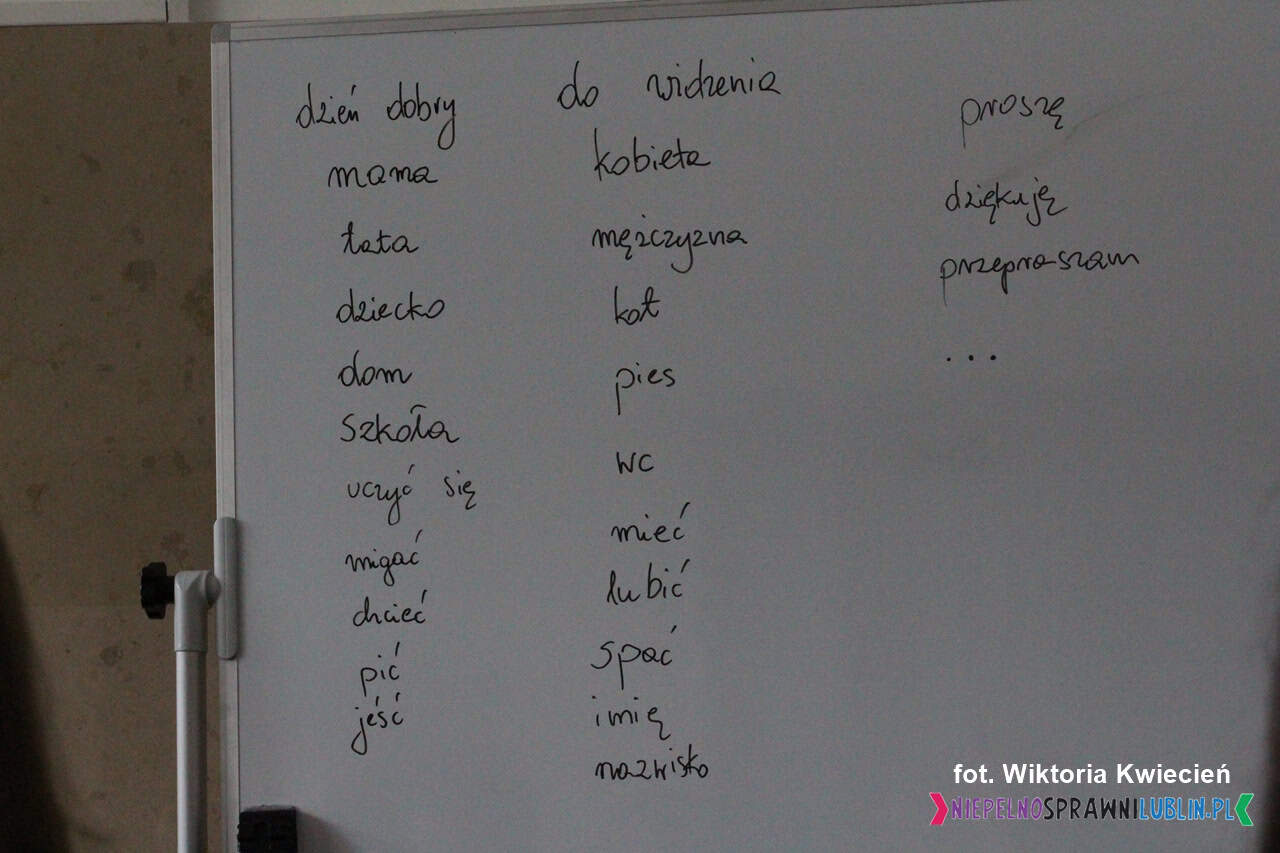 dzień dobry
mama
tata
dziecko
dom
szkoła
uczyć się
migać
chcieć
pić
jeść
do widzenia
kobieta
mężczyzna
kot
pies
WC
mieć
lubić
spać
imię
nazwisko
proszę
dziękuję
przepraszam
...
fot. Wiktoria Kwiecień
NIEPEŁNOSPRAWNILUBLIN.PL